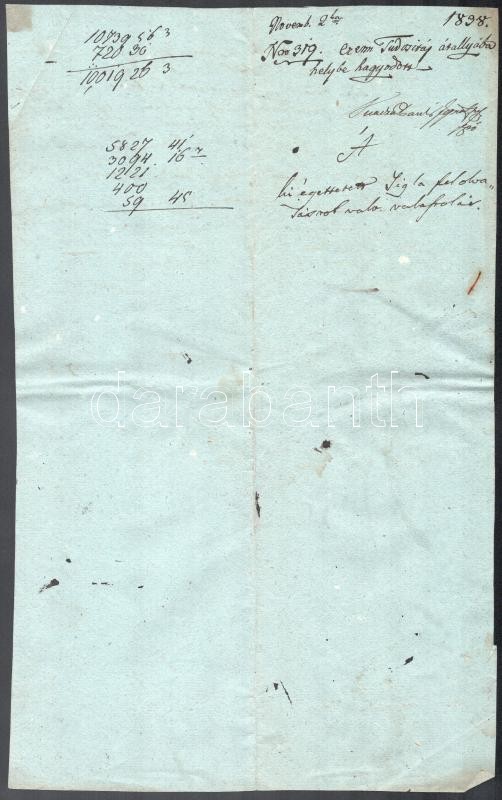 10739 56 3
720 30
10019 26 3
5827 41
3094. 16 2
1221
400
59 45
Novemb. 2ka 1838.
Nro 319. ezenn Tudositás átallyába
helybe hagyodott
A
ki égettetett Tégla felolva„
Tásrol valo
darabanth